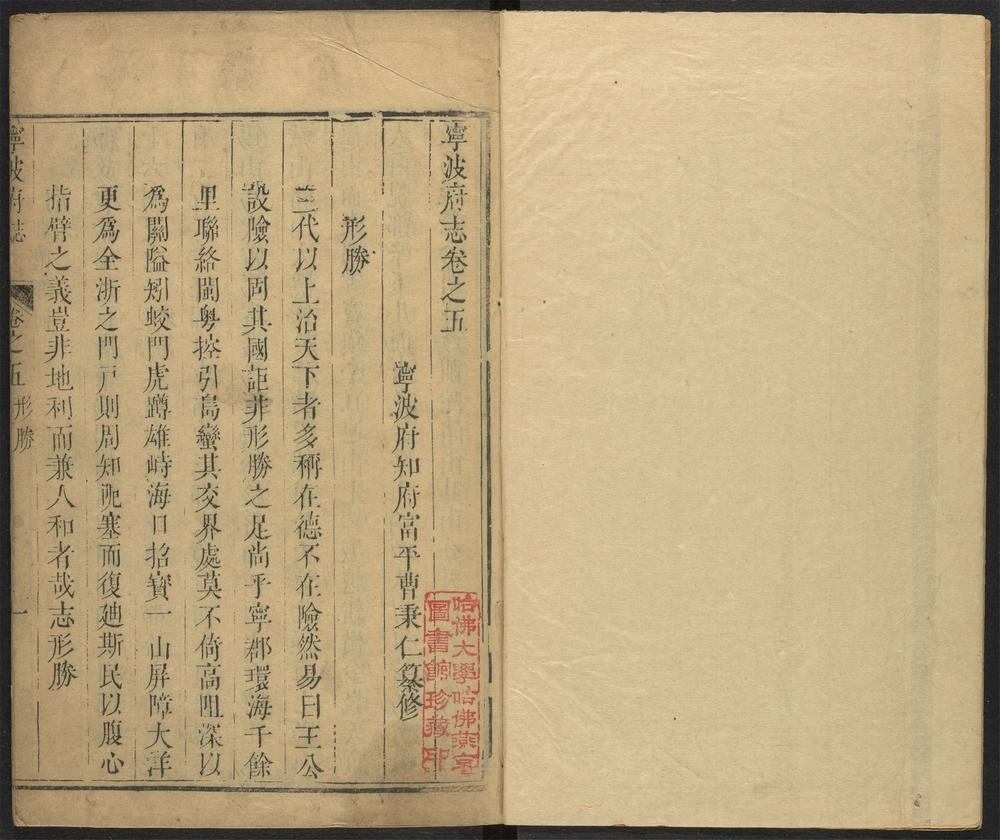 寧波府志卷之五
寧波府知府富平曹秉仁纂修
形勝
三代以上治天下者多稱在德不在險然易曰王公
設險以固其國詎非形勝之足尚乎寧郡環海千餘
里聯絡閩粵控引島蠻其交界處莫不倚高阻深以
為關隘矧蛟門虎蹲雄峙海口招寶一山屏障大洋
更為全浙之門戸則周知阨塞而復廸斯民以腹心
指臂之義豈非地利而兼人和者哉志形勝
寧波府誌
卷之五
形勝
一
哈佛大學哈佛燕京
圖書館珍藏印